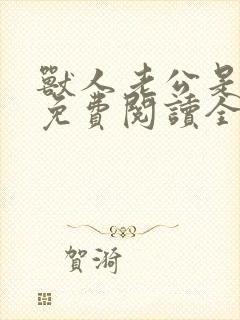 獸人老公是
免費閱讀全
賀漪